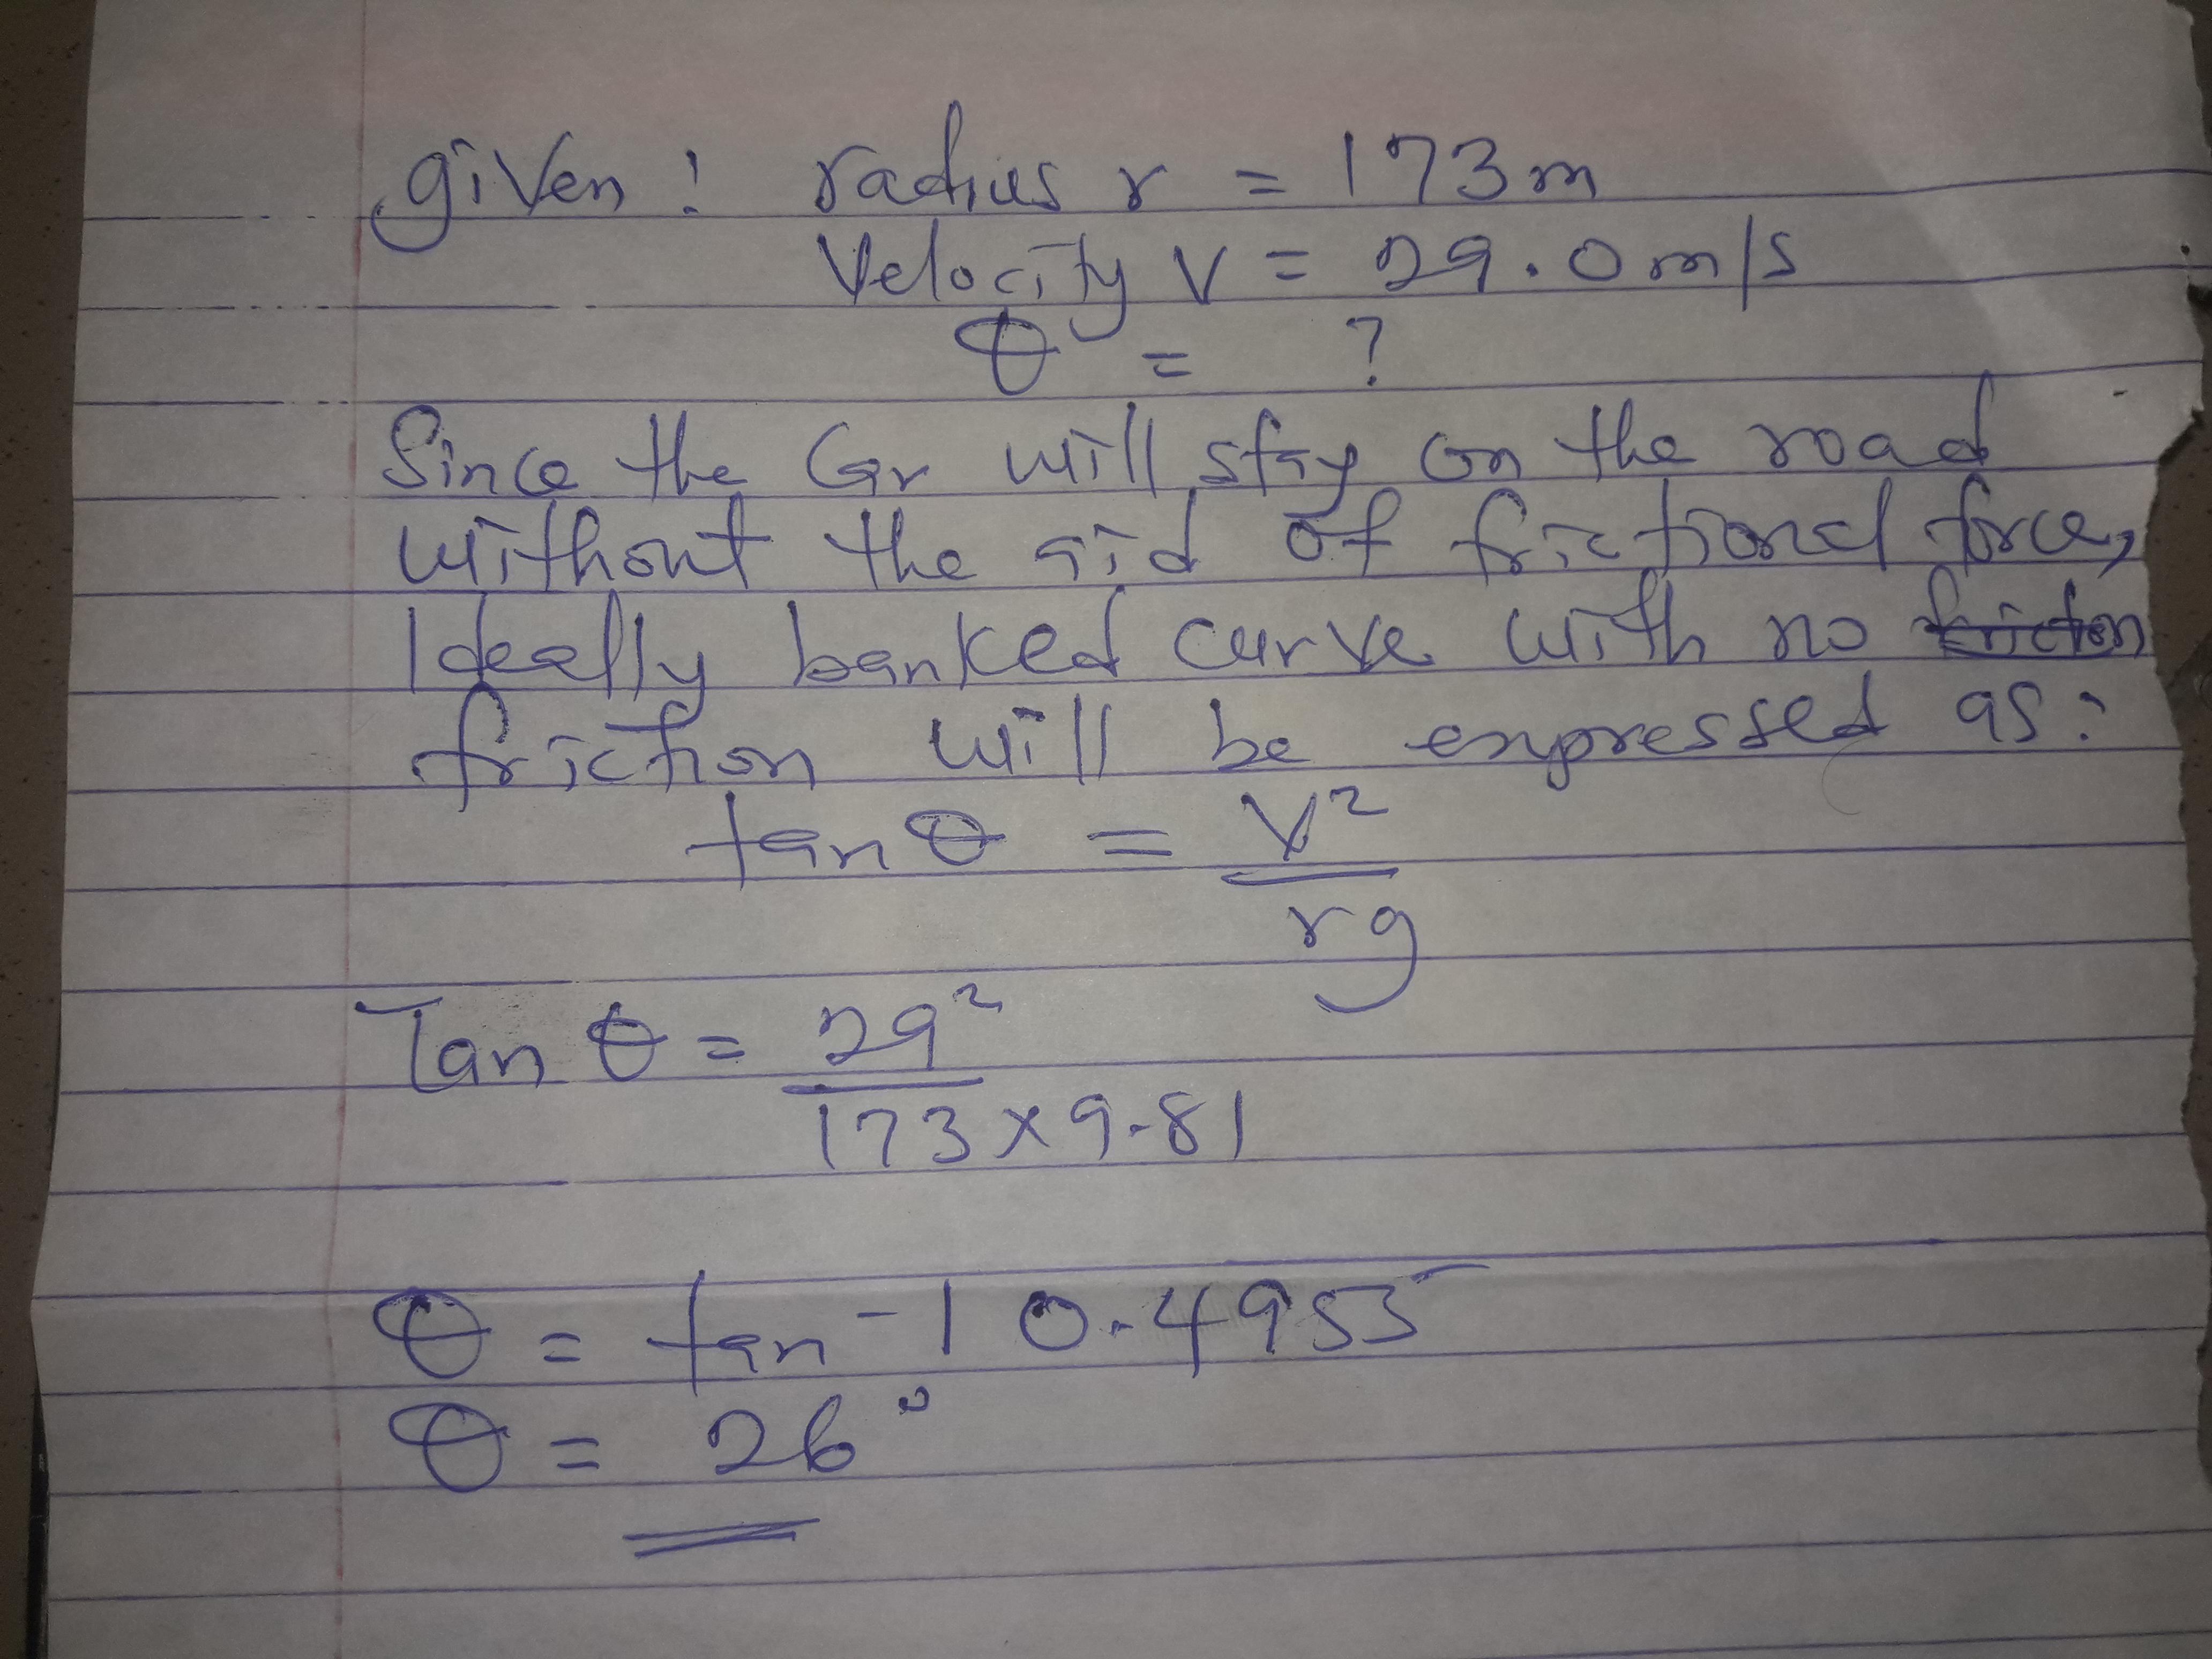 given: radius r = 173m
Velocity V = 29.0m/s
θ = ?
Since the Car will stay on the road
without the aid of frictional force,
Ideally banked curve with no friction
friction will be expressed as:
tan θ = V²
rg
Tan θ = 29²
173 x 9.81
θ = tan -1 0.4955
θ = 26°